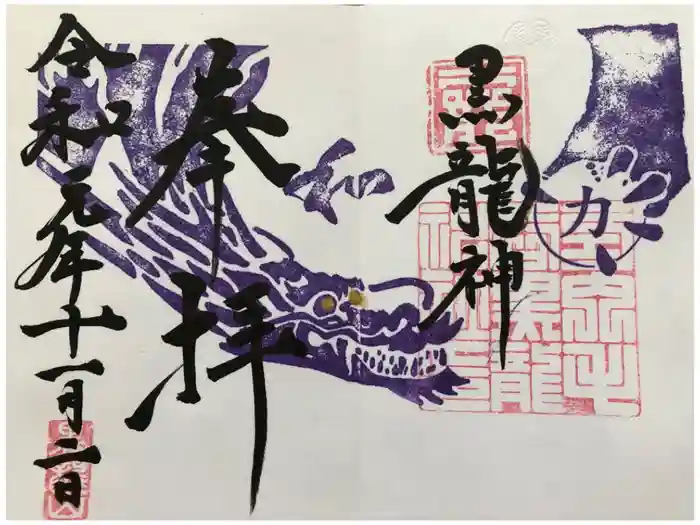 カ
黒龍神
和
奉拝
令和元年十一月二日